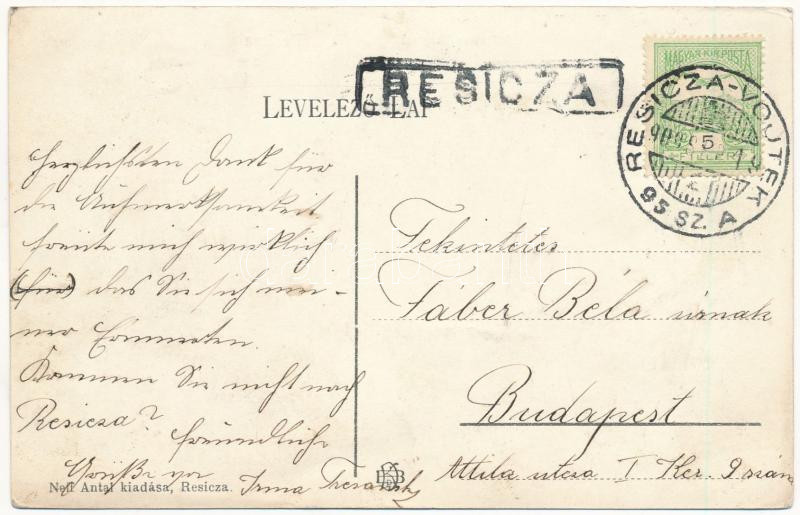 RESICZA
MAGYAR KIR. POSTA
LEVELEZŐ-LAP
RESICZA-VOJTEK
5
FILLÉR
95 SZ. A
Herzlichsten Dank für
die Aufmerksamkeit
freute mich wirklich
(für) das Sie sich mei-
ner Erinnerten.
Kommen Sie nicht nach
Resicza?
freundliche
Grüße von
Irma
Tekintetes
Fáber Béla úrnak
Budapest
Attila utcza I Ker. 9 szám
Neff Antal kiadása, Resicza.